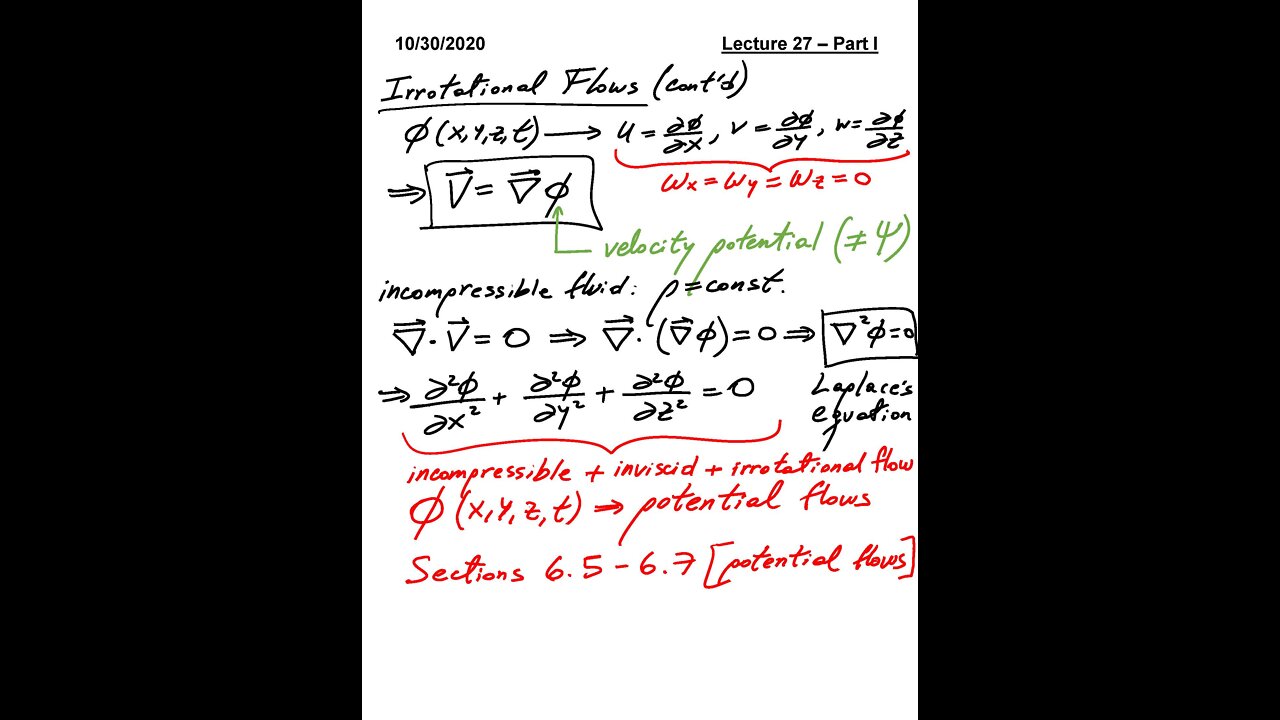 10/30/2020 Lecture 27 – Part I
Irrotational Flows (cont'd)
ϕ(x,y,z,t) ⟶ u = ∂ϕ/∂x, v = ∂ϕ/∂y, w = ∂ϕ/∂z
ωx = ωy = ωz = 0
⇒ V⃗ = ∇⃗ϕ
velocity potential (≠ Ψ)
incompressible fluid: ρ = const.
∇⃗·V⃗ = 0 ⇒ ∇⃗·(∇⃗ϕ) = 0 ⇒ ∇²ϕ = 0
⇒ ∂²ϕ/∂x² + ∂²ϕ/∂y² + ∂²ϕ/∂z² = 0
Laplace's
equation
incompressible + inviscid + irrotational flow
ϕ(x,y,z,t) ⇒ potential flows
Sections 6.5 – 6.7 [potential flows]